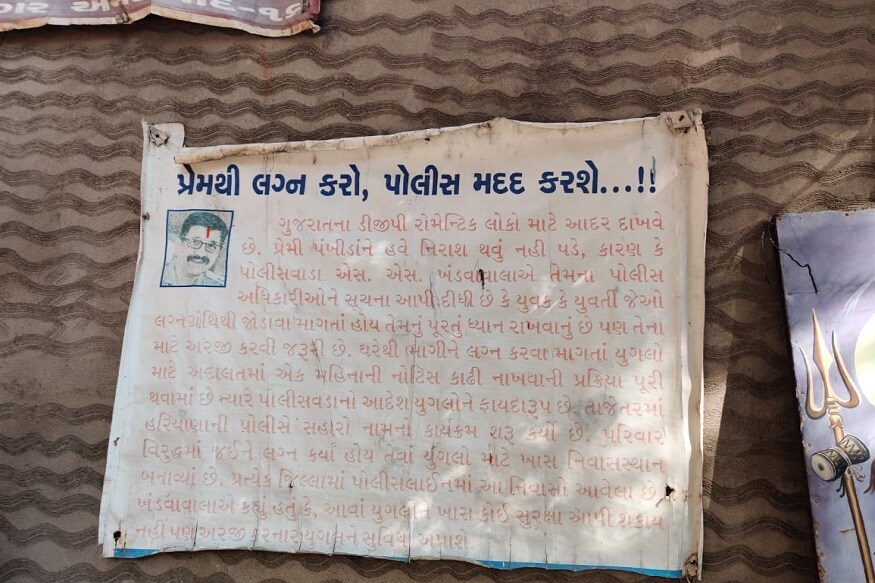 પ્રેમથી લગ્ન કરો, પોલીસ મદદ કરશે...!!
ગુજરાતના ડીજીપી રોમેન્ટિક લોકો માટે આદર દાખવે
છે. પ્રેમી પંખીડાંને હવે નિરાશ થવું નહી પડે, કારણ કે
પોલીસવાડા એસ. એસ. ખંડવાવાલાએ તેમના પોલીસ
અધિકારીઓને સૂચના આપી દીધી છે કે યુવક કે યુવર્તી જેઓ
લગ્નગ્રંથિથી જોડાવા માગતાં હોય તેમનું પૂરતું ધ્યાન રાખવાનું છે પણ તેના
માટે અરજી કરવી જરૂરી છે. ઘરેથી ભાગીને લગ્ન કરવા માગતાં યુગલો
માટે અદાલતમાં એક મહિનાની નોટિસ કાઢી નાખવાની પ્રક્રિયા પૂરી
થવામાં છે ત્યારે પોલીસવડાનો આદેશ યુગલોને ફાયદારૂપ છે. તાજેતરમાં
હરિયાણાની પોલીસે સહારો નામનો કાર્યક્રમ શરૂ કર્યો છે. પરિવાર
વિરુદ્ધમાં જઈને લગ્ન કર્યાં હોય તેવાં યુગલો માટે ખાસ નિવાસસ્થાન
બનાવ્યાં છે. પ્રત્યેક જિલ્લામાં પોલીસલાઈનમાં આ નિવાસો આવેલા છે.
ખંડવાવાલાએ કહ્યું હતું કે, આવાં યુગલોને ખાસ કોઈ સુરક્ષા આપી શકાય
નહી પણ અરજી કરનાર યુગલને સુવિધા અપાશે